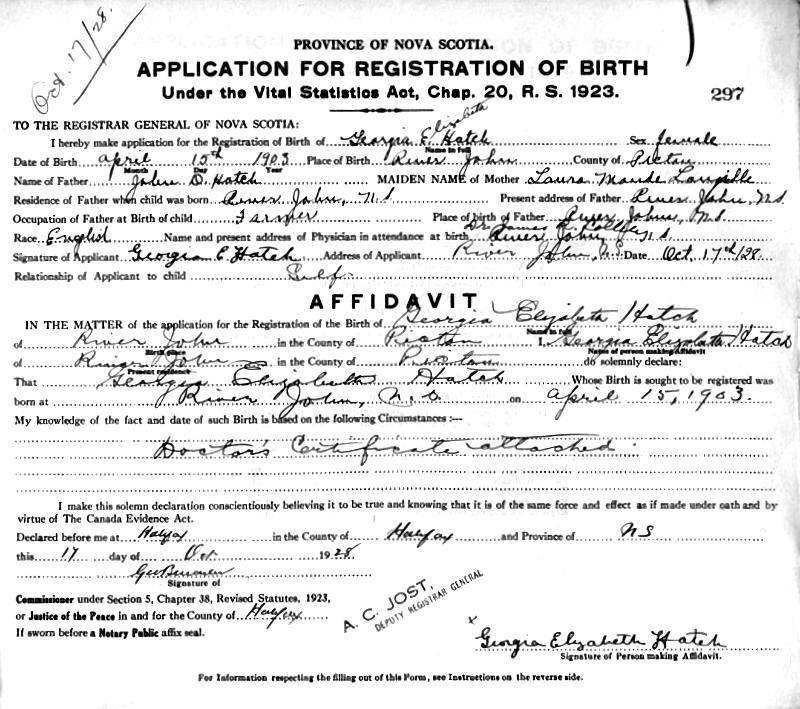 Oct. 17/28.
PROVINCE OF NOVA SCOTIA.
APPLICATION FOR REGISTRATION OF BIRTH
Under the Vital Statistics Act, Chap. 20, R. S. 1923.
297
TO THE REGISTRAR GENERAL OF NOVA SCOTIA:
Elizabeth
I hereby make application for the Registration of Birth of Georgia E. Hatch Sex female
Name in full
Date of Birth April 15th 1903 Place of Birth River John County of Pictou
Month Day Year
Name of Father John D. Hatch MAIDEN NAME of Mother Laura Maude Langille
Residence of Father when child was born River John, N.S Present address of Father River John, N.S
Occupation of Father at Birth of child Farmer Place of birth of Father River John, N.S.
Race English Name and present address of Physician in attendance at birth Dr. James River John, N.S.
Signature of Applicant Georgia E. Hatch Address of Applicant River John, N.S. Date Oct. 17th/28.
Relationship of Applicant to child Self.
AFFIDAVIT
IN THE MATTER of the application for the Registration of the Birth of Georgia Elizabeth Hatch
Name in full
of River John in the County of Pictou I, Georgia Elizabeth Hatch
Birth place Name of person making Affidavit
of River John in the County of Pictou do solemnly declare:
Present residence
That Georgia Elizabeth Hatch Whose Birth is sought to be registered was
born at River John, N.S. on April 15, 1903.
My knowledge of the fact and date of such Birth is based on the following Circumstances :—
Doctor's Certificate attached.
I make this solemn declaration conscientiously believing it to be true and knowing that it is of the same force and effect as if made under oath and by
virtue of The Canada Evidence Act.
Declared before me at Halifax in the County of Halifax and Province of NS
this 17 day of Oct 1928
Signature of
Commissioner under Section 5, Chapter 38, Revised Statutes, 1923,
or Justice of the Peace in and for the County of Halifax
If sworn before a Notary Public affix seal.
A. C. JOST,
DEPUTY REGISTRAR GENERAL
x Georgia Elizabeth Hatch
Signature of Person making Affidavit.
For Information respecting the filling out of this Form, see Instructions on the reverse side.